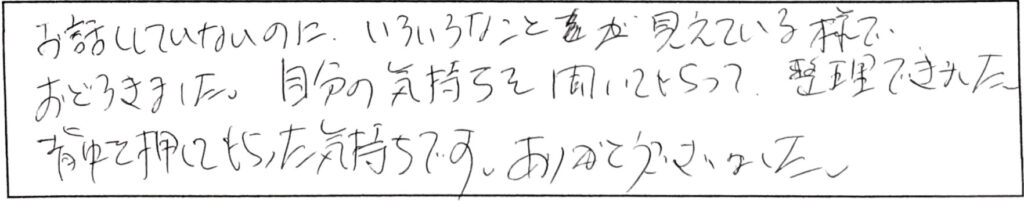 お話ししていないのに、いろいろなことが見えている様で、
おどろきました。自分の気持ちを聞いてもらって、整理できました
背中を押してもらった気持ちです。ありがとうございました。